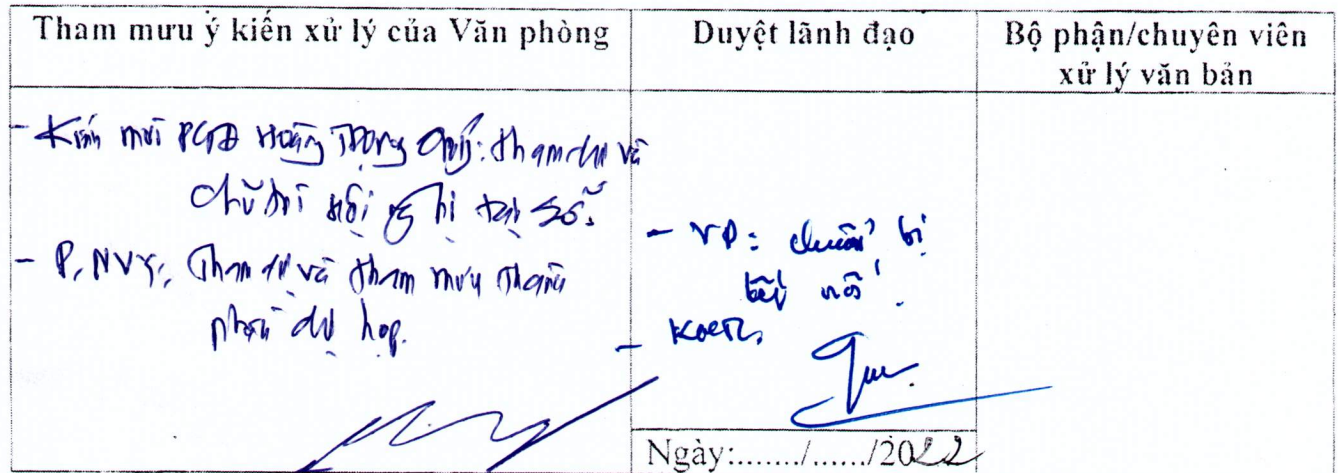 Tham mưu ý kiến xử lý của Văn phòng
Duyệt lãnh đạo
Bộ phận/chuyên viên
xử lý văn bản
- Kính mời PGĐ Hoàng Trọng Quý: tham dự và
chủ trì hội nghị tại sở.
- P. NVY: Tham dự và tham mưu thành
phần dự họp.
- VP: chuẩn bị
kết nối.
-
Ngày:......./....../2022